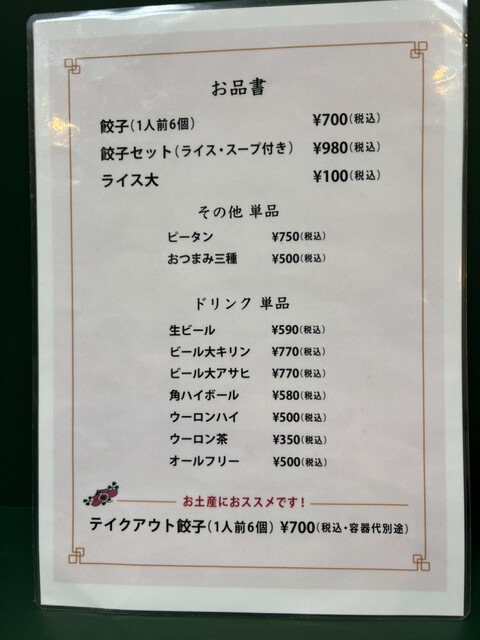 お品書
餃子(1人前6個) ¥700(税込)
餃子セット(ライス・スープ付き) ¥980(税込)
ライス大 ¥100(税込)
その他 単品
ピータン ¥750(税込)
おつまみ三種 ¥500(税込)
ドリンク 単品
生ビール ¥590(税込)
ビール大キリン ¥770(税込)
ビール大アサヒ ¥770(税込)
角ハイボール ¥580(税込)
ウーロンハイ ¥500(税込)
ウーロン茶 ¥350(税込)
オールフリー ¥500(税込)
お土産におススメです!
テイクアウト餃子(1人前6個) ¥700(税込・容器代別途)